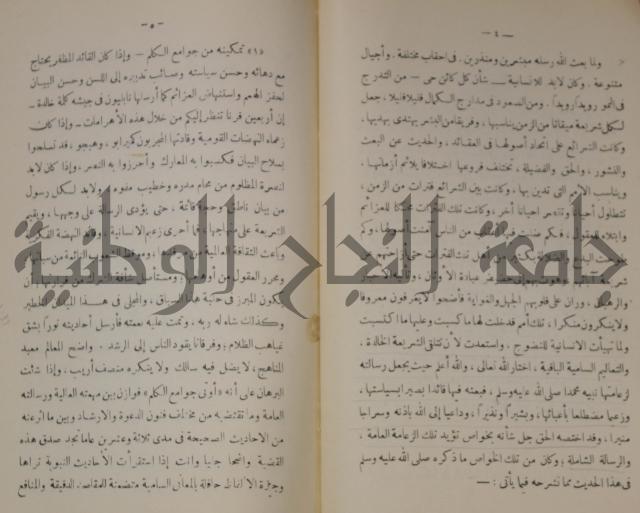 — ٤ —
ولما بعث الله رسله مبشرين ومنذرين. فى أحقاب مختلفة. وأجيال
متنوعة. وكان لابد للانسانية _ شأن كل كائن حى — من التدرج
فى النمو رويداً رويداً. ومن الصعود فى مدارج الكمال قليلا قليلا، جعل
لكل شريعة ميقاتا من الزمن يناسبها، وفريقا من البشر يهتدى بهديها،
وكانت الشرائع على اتحاد أصولها فى العقائد، والحديث عن البعث
والنشور، والحق والفضيلة، تختلف فروعها اختلافا يلائم أزمانها،
ويناسب الأمم التى تدين بها، وكانت بين الشرائع فترات من الزمن،
تتطاول أحيانا وتقصر أحيانا أخر، وكانت تلك الفترات محكا للعزائم
وابتلاء للعقول، فكم من الناس
عبادة الأوثان،
وران على قلوبهم الجهل والغواية فأضحوا لا يعرفون معروفا
ولا ينكرون منكرا، تلك أمم قد خلت لها ما كسبت وعليها ما اكتسبت
ولما تهيأت الانسانية للنضوج، واستعدت لأن تتلقى الشريعة الخالدة،
والتعاليم السامية الباقية، اختار الله تعالى، والله أعلم حيث يجعل رسالته
لزعامتها نبيه محمدا صلى الله عليه وسلم، فبعثه فيها قائدا بصيرا بسياستها،
وزعيما مضطلعا بأعبائها، وبشيرا ونذيرا، وداعيا إلى الله باذنه وسراجا
منيرا، وقد اختصه الحق جل شأنه بخواص تؤيد تلك الزعامة العامة،
والرسالة الشاملة؛ وكان من تلك الخواص ما ذكره صلى الله عليه وسلم
فى هذا الحديث مما نشرحه فيما يأتى: —
— ٥ —
«١» تمكينه من جوامع الكلم — وإذا كان القائد المظفر يحتاج
مع دهائه وحسن سياسته وصائب تدبيره إلى اللسن وحسن البيان
لحفز الهمم واستنهاض العزائم كما أرسلها نابليون فى جيشه كلمة خالدة_
إن أربعين قرنا تنظر إليكم من خلال هذه الأهرامات_ وإذا كان
زعماء النهضات القومية وقادتها المجربون كميرابو، وهيجو، قد تسلحوا
بسلاح البيان فكسبوا به المعارك وأحرزوا به النصر، وإذا كان لابد
لنصرة المظلوم من محام مدره وخطيب مفوه، ولابد لكل رسول
من بيان ناطق وحجة قائمة، حتى يؤدى الرسالة على وجهها، ويقيم
الشريعة على منهاجها، فما أحرى زعيم الانسانية، وقائد النهضة الفكرية
وباعث الثقافة العالية من
ومحرر العقول من
يكون المبرز فى حلبة هذا السباق، والمجلى فى هذا الميدان الخطير
وكذلك شاء له ربه، وتمت عليه نعمته فأرسل أحاديثه نورا يشق
غياهب الظلام؛ وفرقانا يقود الناس إلى الرشد. واضح المعالم معبد
المناهج، لا يضل فيه سالك ولا ينكره منصف أريب، وإذا شئت
البرهان على أنه «أوتى جوامع الكلم» فوازن بين مهمته العالية ورسالته
العامة وما تقتضيه من مختلف فنون الدعوة والارشاد وبين ما أثر عنه
من الأحاديث الصحيحة فى مدى ثلاثة وعشرين عاما تجد صدق هذه
القضية واضحا جليا وأنت إذا استقرأت الأحاديث النبوية تراها
وجيزة الألفاظ حافلة بالمعانى السامية متضمنة للمقاصد الدقيقة والمنافع
جامعة النجاح الوطنية